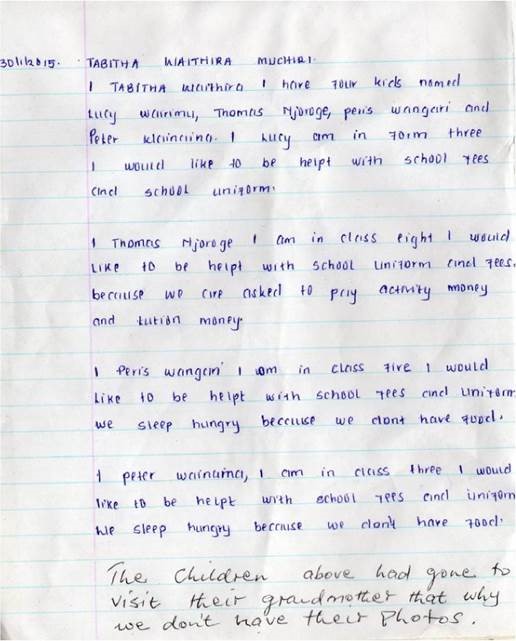 30/1/2015. TABITHA WAITHIRA MUCHIRI.
I TABITHA Waithira I have four kids named
Lucy Wairimu, Thomas Njoroge, peris wangari and
Peter Wainaina. I Lucy am in form three
I would like to be helpt with school fees
and school uniform.
I Thomas Njoroge I am in class eight I would
Like to be helpt with school uniform and fees.
because we are asked to pay activity money
and tution money.
I Peris wangari I am in class five I would
Like to be helpt with school fees and uniform
we sleep hungry because we dont have food.
I peter wainaina, I am in class three I would
like to be helpt with school fees and uniform
We sleep hungry because we don't have food.
The Children above had gone to
visit their grandmother that why
we don't have their Photos.